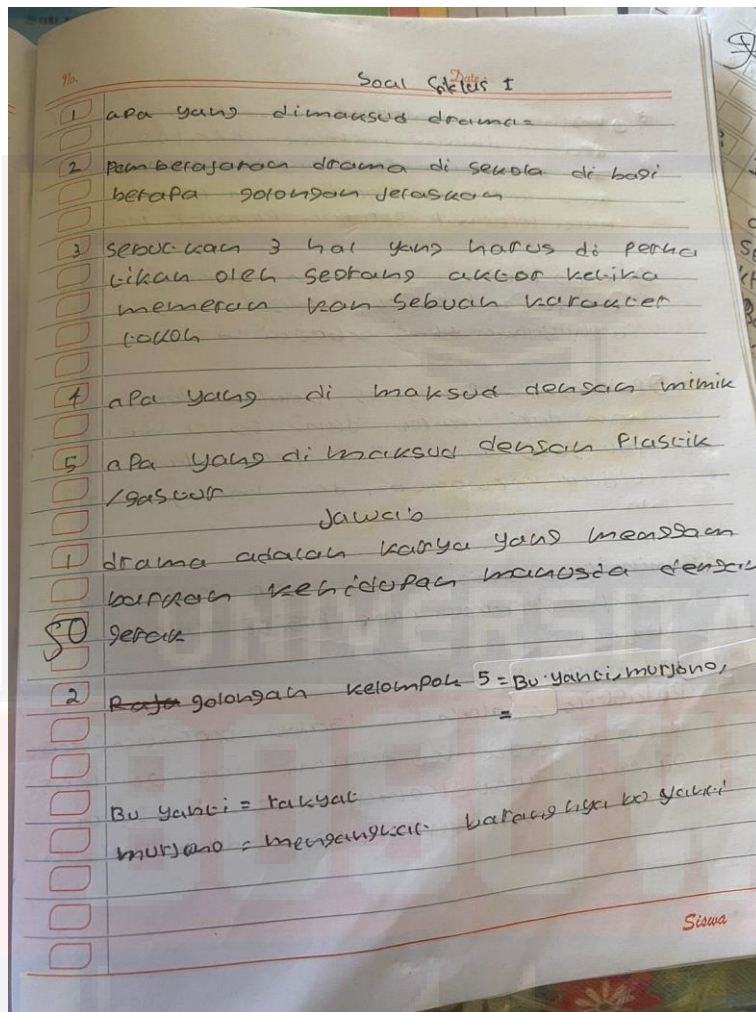 No.
Date
Soal Siklus I
1 apa yang dimaksud drama=
2 Pemberajaran drama di sekola di bagi
berapa golongan Jelaskan
3 sebutkan 3 hal yang harus di perha
tikan oleh seorang aktor ketika
memeran kan sebuah karakter
tokoh
4 apa yang di maksud dengan mimik
5 apa yang di maksud dengan Plastik
/gastur
Jawab
1 drama adalah karya yang menggam
barkan kehidupan manusia dengan
gerak
50
2 golongan kelompok 5 = Bu yanti, murjono,
=
Bu yanti = rakyat
murjono = mengangkat barang nya bo yanti
Siswa
UNIVERSITA
BOSOW